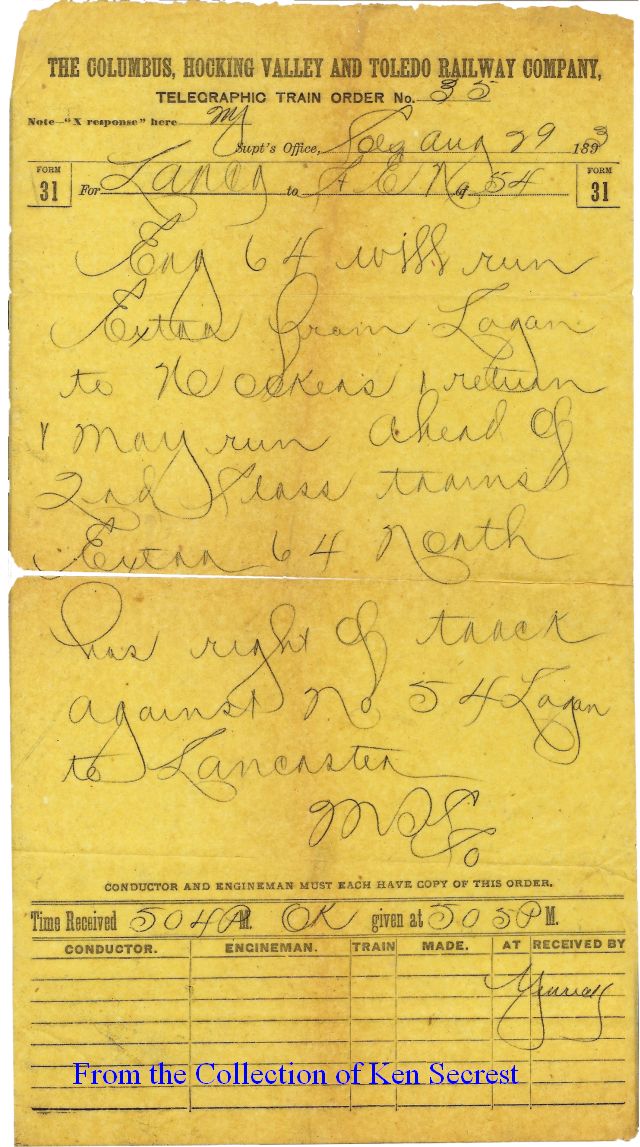 THE COLUMBUS, HOCKING VALLEY AND TOLEDO RAILWAY COMPANY,
TELEGRAPHIC TRAIN ORDER No. 35
Note—"X response" here
Supt's Office, Aug 29 1893
FORM 31 For to C & E No of 54 FORM 31
Eng 64 will run
Extra from Logan
to & return
& may run ahead of
2nd Class trains
Extra 64 North
has right of track
against No 54 Logan
to Lancaster
CONDUCTOR AND ENGINEMAN MUST EACH HAVE COPY OF THIS ORDER.
Time Received 504 P M. OK given at 505 P M.
CONDUCTOR. ENGINEMAN. TRAIN MADE. AT RECEIVED BY
From the Collection of Ken Secrest